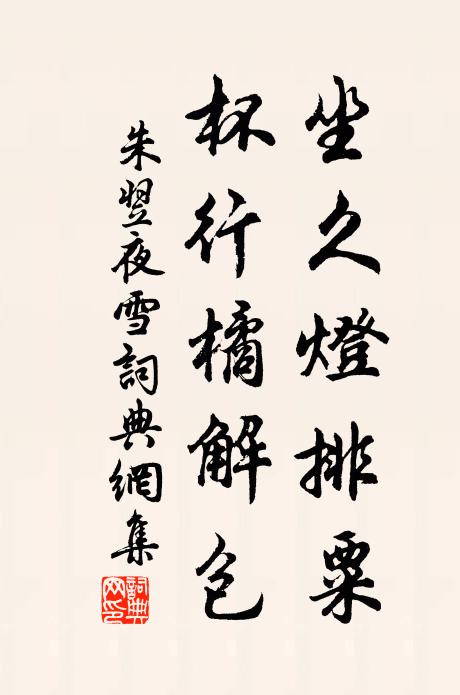 坐久燈排粟
杯行橘解包
朱翌夜雪詞典網集
詞典網印